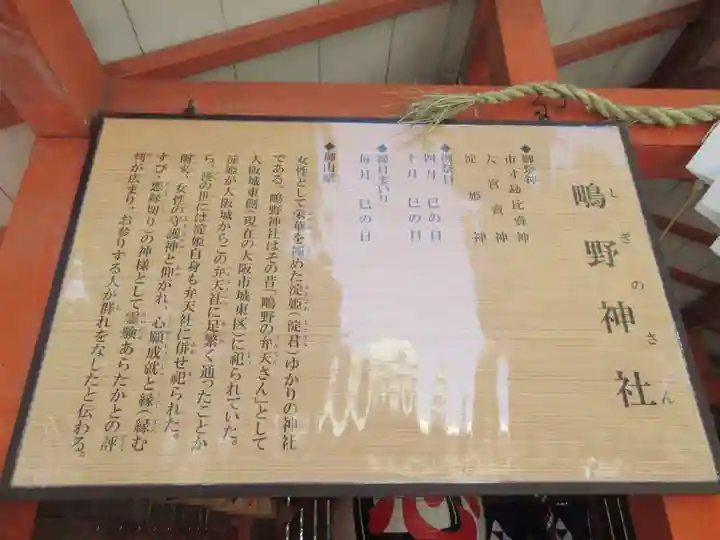 鴫野神社
しぎのさん
◆御祭神
市寸島比賣神
大宮賣神
淀姫神
◆例祭日
四月 巳の日
十月 巳の日
◆縁日まいり
毎月 巳の日
◆御由緒
女性として栄華を極めた淀姫（淀君）ゆかりの神社
である。鴫野神社はその昔「鴫野の弁天さん」として
大阪城東側（現在の大阪市城東区）に祀られていた。
淀姫が大阪城からこの弁天社に足繁く通ったことか
ら、後の世には淀姫自身も弁天社に併せ祀られた。
爾来、女性の守護神と仰がれ、心願成就と縁（縁む
すび・悪縁切り）の神様として霊験あらたかとの評
判が広まり、お参りする人が群れをなしたと伝わる。